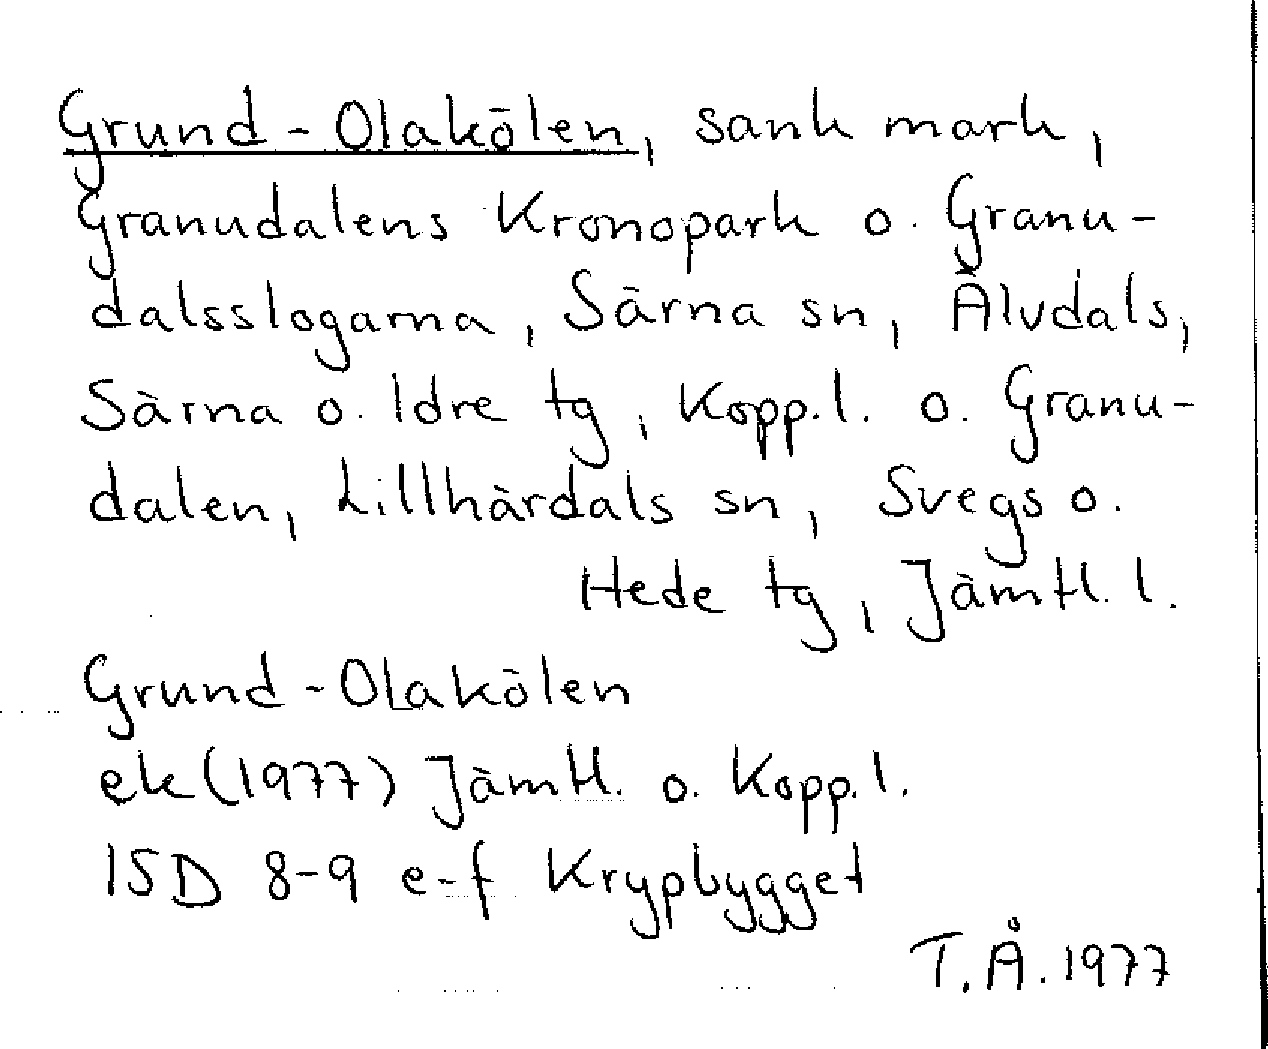 Grund-Olakölen, sank mark,
Granudalens Kronopark o. Granu-
dalsslogarna, Särna sn, Älvdals,
Särna o. Idre tg, Kopp.l. o. Granu-
dalen, Lillhärdals sn, Svegs o.
Hede tg, Jämtl. l.
Grund-Olakölen
ek(1977) Jämtl. o. Kopp.l.
15D 8-9 e-f Krypbygget
T.Å.1977